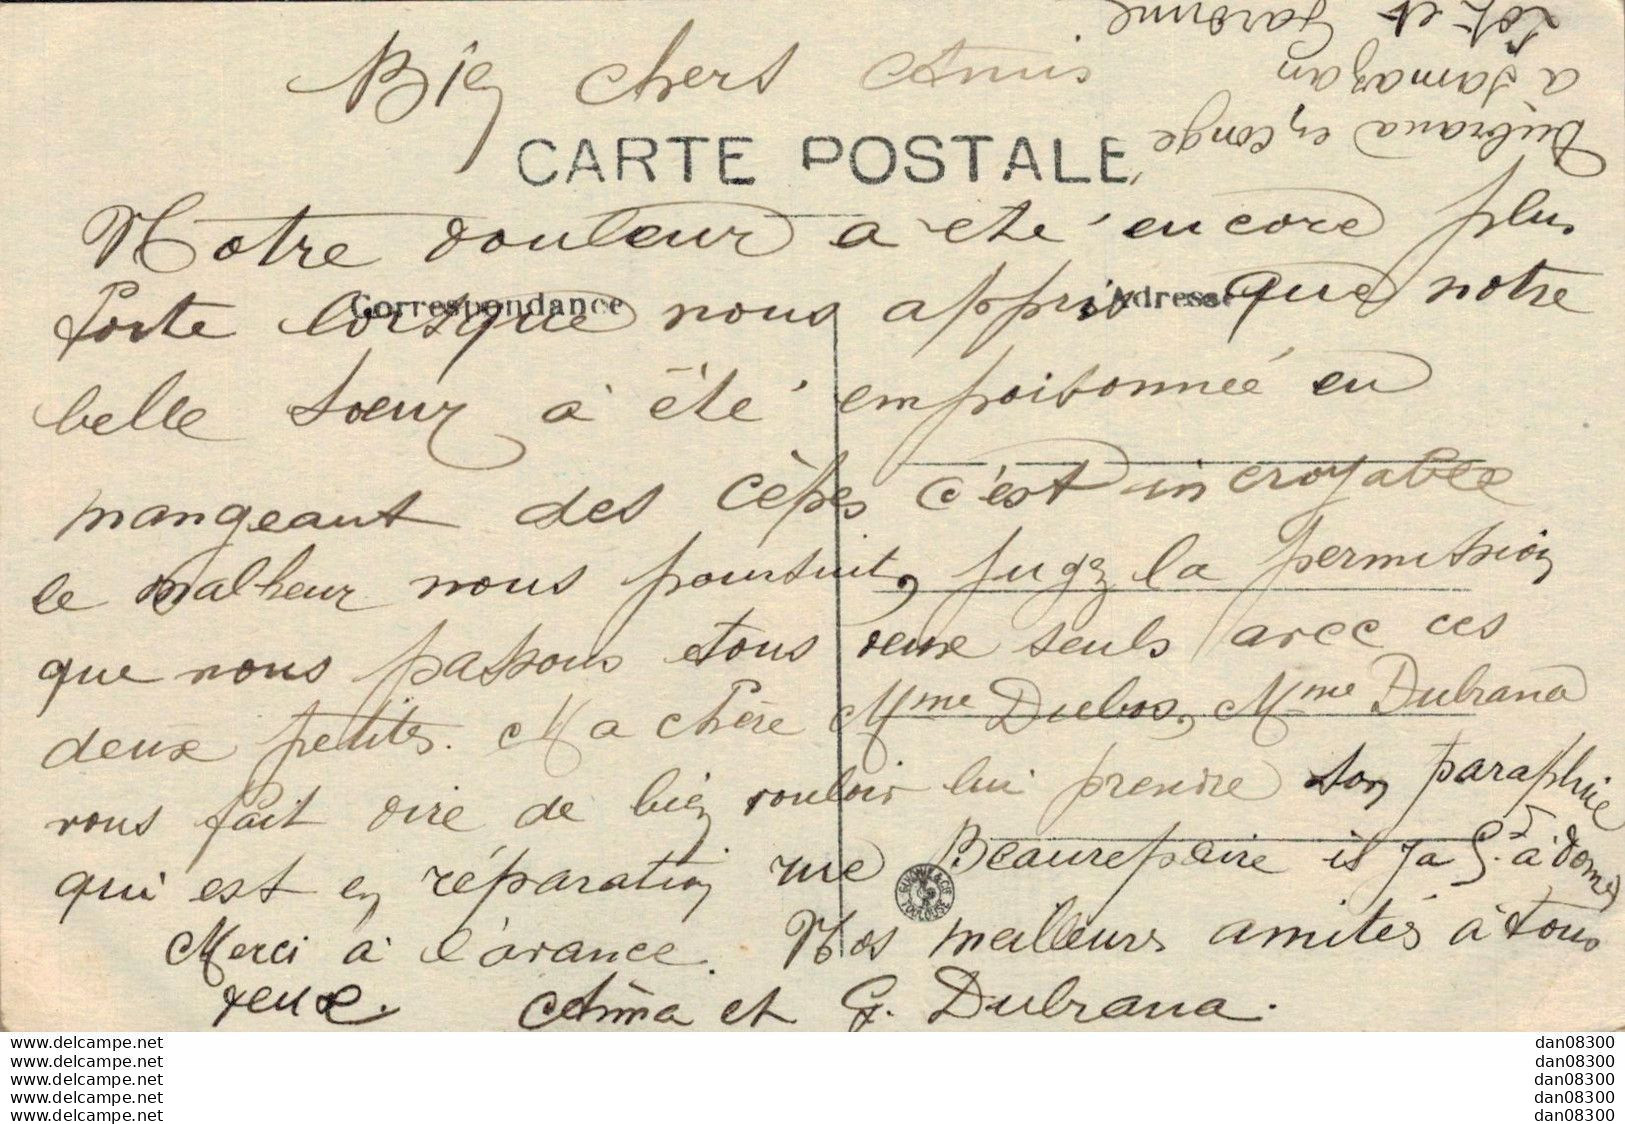 Bien chers Amis
CARTE POSTALE
Notre douleur a été encore plus
forte lorsque nous appris que notre
Correspondance
Adresse
belle sœur à été empoisonnée en
mangeant des cèpes c'est incroyable
le malheur nous poursuit, jugez la permission
que nous passons tous deux seuls avec ces
deux petites. Ma chère Mme Dubos, Mme Dubrana
vous fait dire de bien vouloir lui prendre son paraphuie
qui est en réparation rue Beaurepaire il y a 5. à donner
Merci à l'avance. Nos meilleurs amitiés à tous
deux. Anna et G. Dubrana.
Dubrana en conge
a Samazan
Lot et Garonne
TOULOUSE
www.delcampe.net
www.delcampe.net
www.delcampe.net
www.delcampe.net
www.delcampe.net
dan08300
dan08300
dan08300
dan08300
dan08300